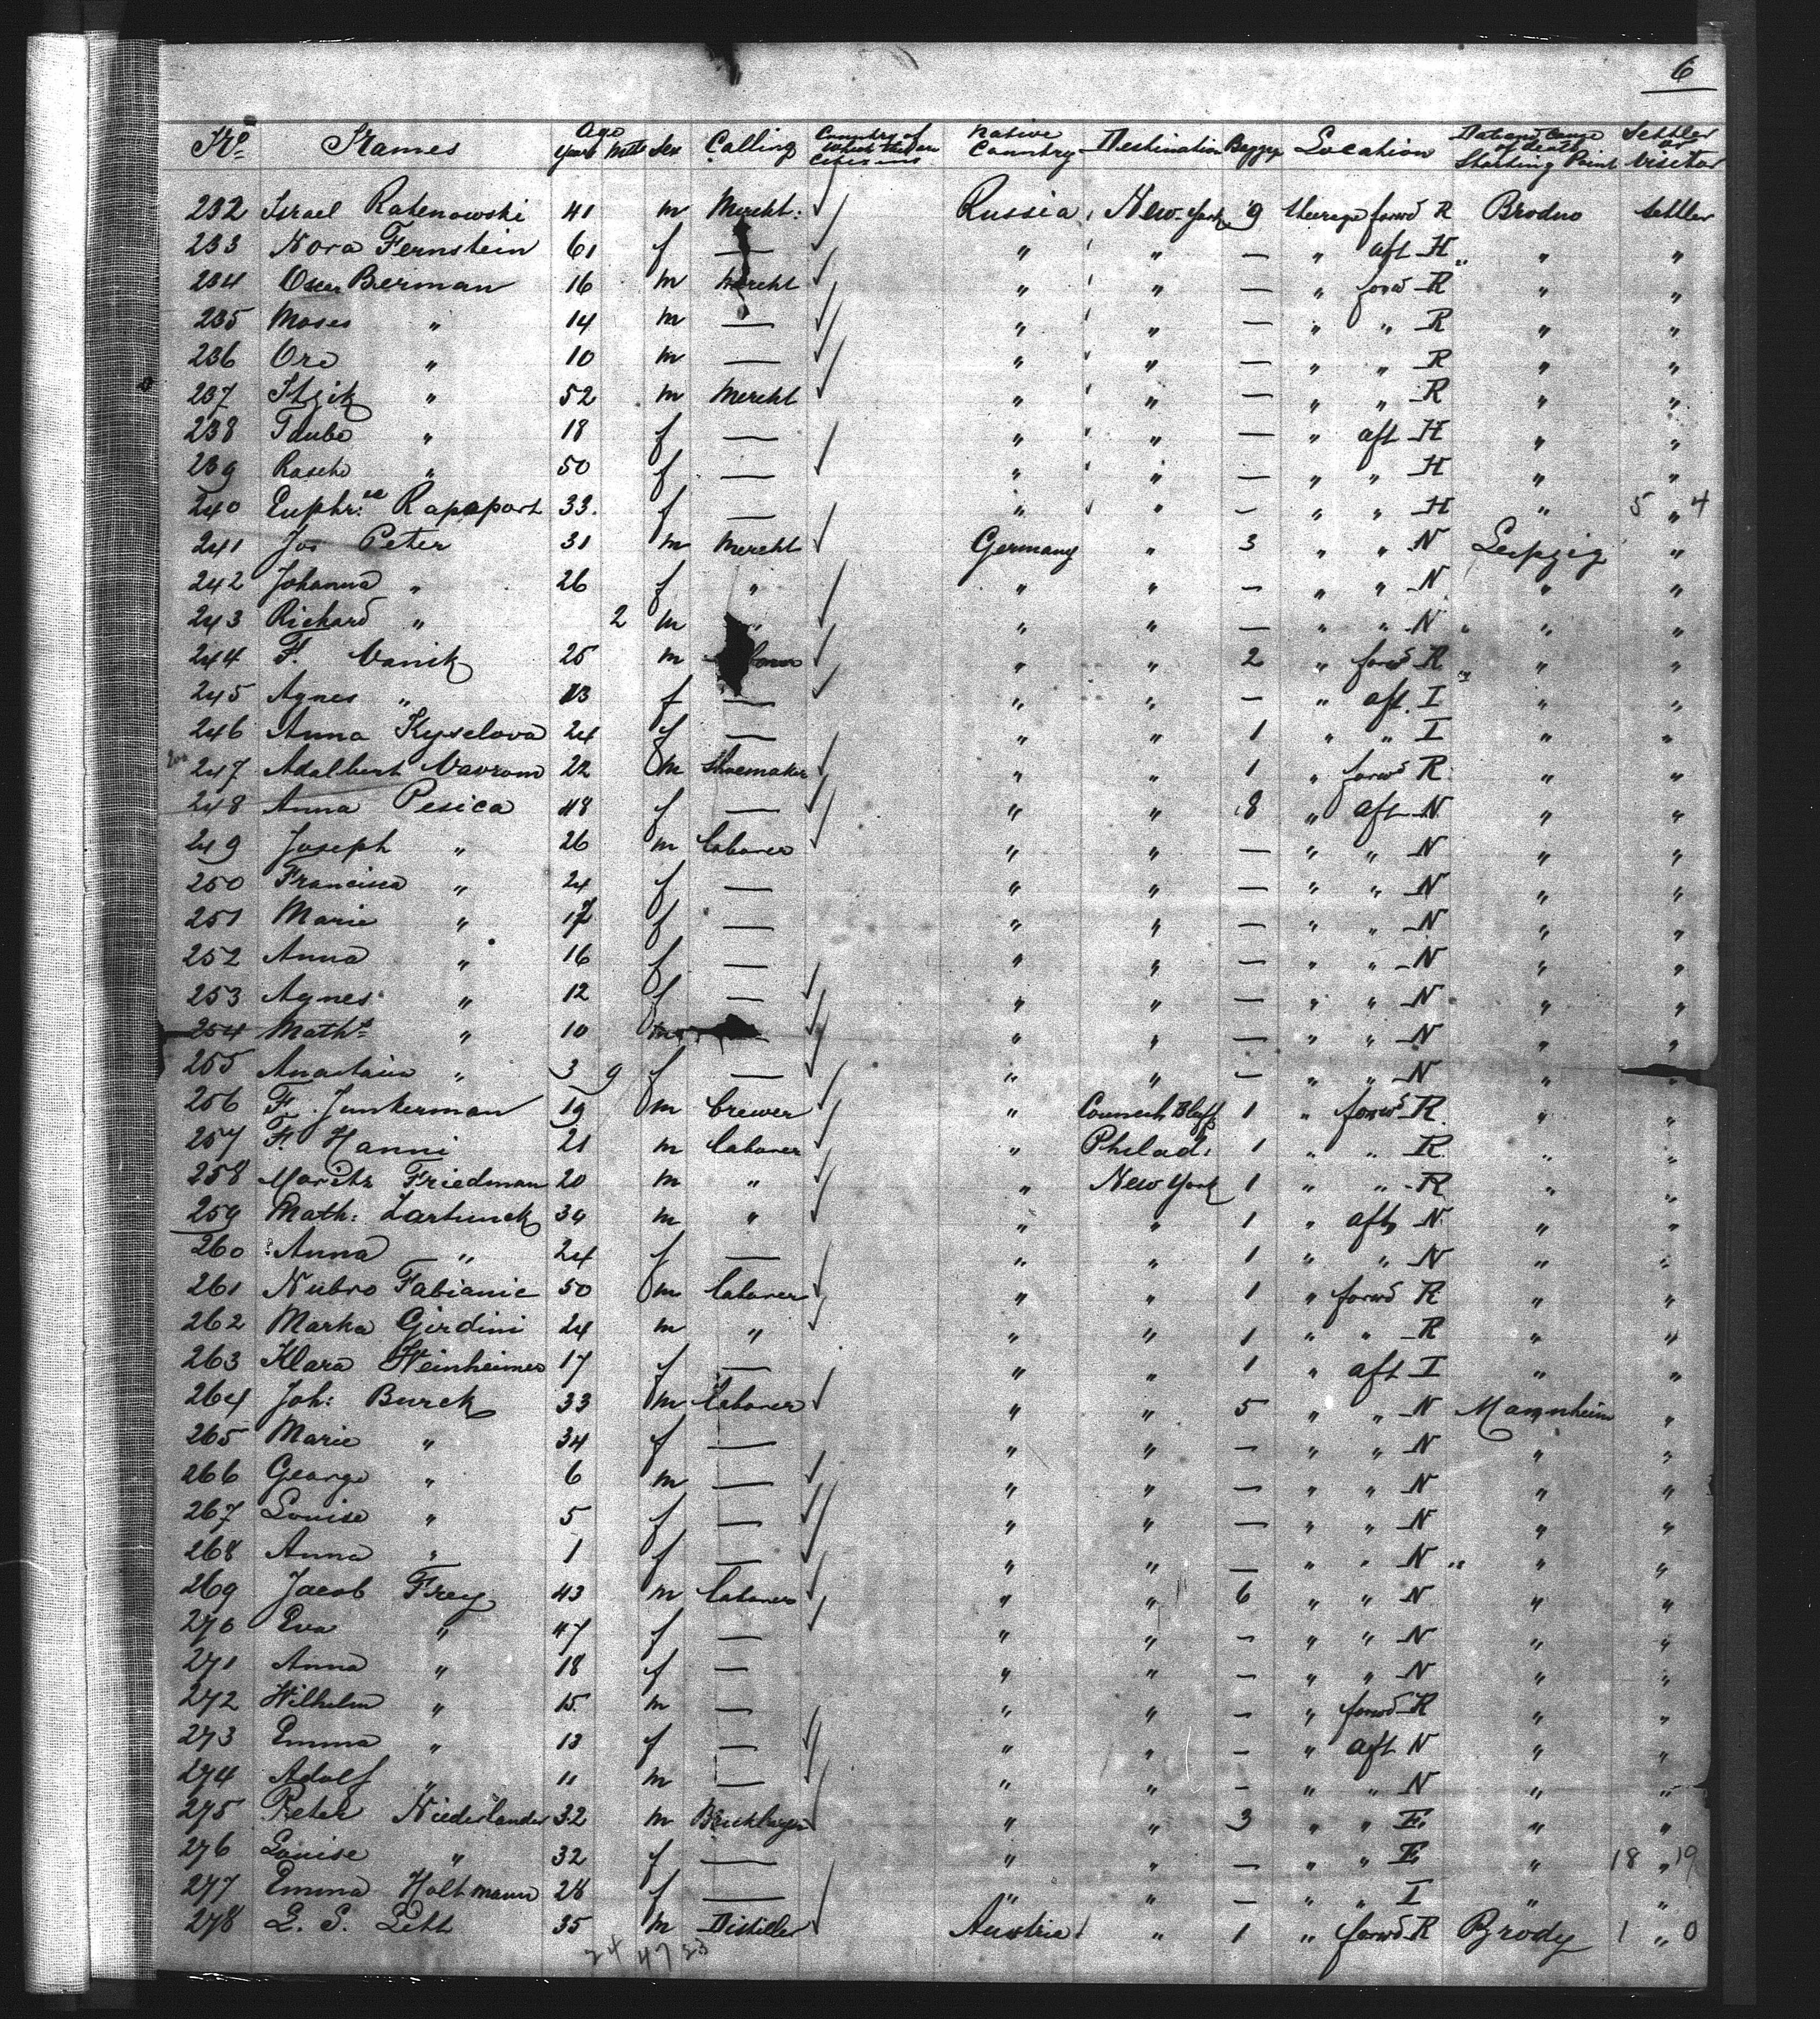 6
No. Names Age Years Mths Sex Calling Country of which they are citizens Native Country Destination Baggage Location Date and Cause of death Starting Point Settler or Visitor
232 Israel Ratenowski 41 m Mercht: Russia New-York 9 Steerage forwd R Brodno Settler
233 Nora Fernstein 61 f — " " — " aft H " "
234 Oscar Berman 16 m Mercht " " — " forwd R " "
235 Moses " 14 m — " " — " " R " "
236 Ore " 10 m — " " — " " R " "
237 Itzik " 52 m Mercht " " — " " R " "
238 Taube " 18 f — " " — " aft H " "
239 Rasche " 50 f — " " — " " H " "
240 Euphr: Rapaport 33 f — " " — " " H " 5 " 4
241 Jos Peter 31 m Mercht Germany " 3 " " N Leipzig "
242 Johanna " 26 f " " " — " " N " "
243 Richard " 2 m " " " — " " N " "
244 F. Vanik 25 m " " 2 " forwd R " "
245 Agnes " 23 f — " " — " aft I " "
246 Anna Kyselova 24 f — " " 1 " " I " "
247 Adalbert Vavrom 22 m Shoemaker " " 1 " forwd R " "
248 Anna Pesica 48 f — " " 8 " aft N " "
249 Joseph " 26 m laborer " " — " " N " "
250 Francisca " 24 f — " " — " " N " "
251 Marie " 17 f — " " — " " N " "
252 Anna " 16 f — " " — " " N " "
253 Agnes " 12 f — " " — " " N " "
254 Maths " 10 m — " " — " " N " "
255 Anastasia " 3 9 f — " " — " " N " "
256 F. Junkerman 19 m brewer " Council Bluffs 1 " forwd R " "
257 F. Hanni 21 m laborer " Philad: 1 " " R " "
258 Moritz Friedman 20 m " " New York 1 " " R " "
259 Math: Zartunek 34 m " " " 1 " aft N " "
260 Anna " 24 f — " " 1 " " N " "
261 Nubro Fabianic 50 m laborer " " 1 " forwd R " "
262 Marka Girdini 24 m " " " 1 " " R " "
263 Klara Steinheimer 17 f — " " 1 " aft I " "
264 Joh: Burck 33 m laborer " " 5 " " N Mannheim "
265 Marie " 34 f — " " — " " N " "
266 George " 6 m — " " — " " N " "
267 Louise " 5 f — " " — " " N " "
268 Anna " 1 f — " " — " " N " "
269 Jacob Frey 43 m laborer " " 6 " " N " "
270 Eva " 47 f — " " — " " N " "
271 Anna " 18 f — " " — " " N " "
272 Wilhelm " 15 m — " " — " forwd R " "
273 Emma " 13 f — " " — " aft N " "
274 Adolf " 11 m — " " — " " N " "
275 Peter Niederlander 32 m Bricklayer " " 3 " " E " "
276 Louise " 32 f — " " — " " E " 18 " 19
277 Emma Holtmann 28 f — " " — " " I " "
278 L. S. Lett 35 m Distiller Austria " 1 " forwd R Brody 1 " 0
24 47 23